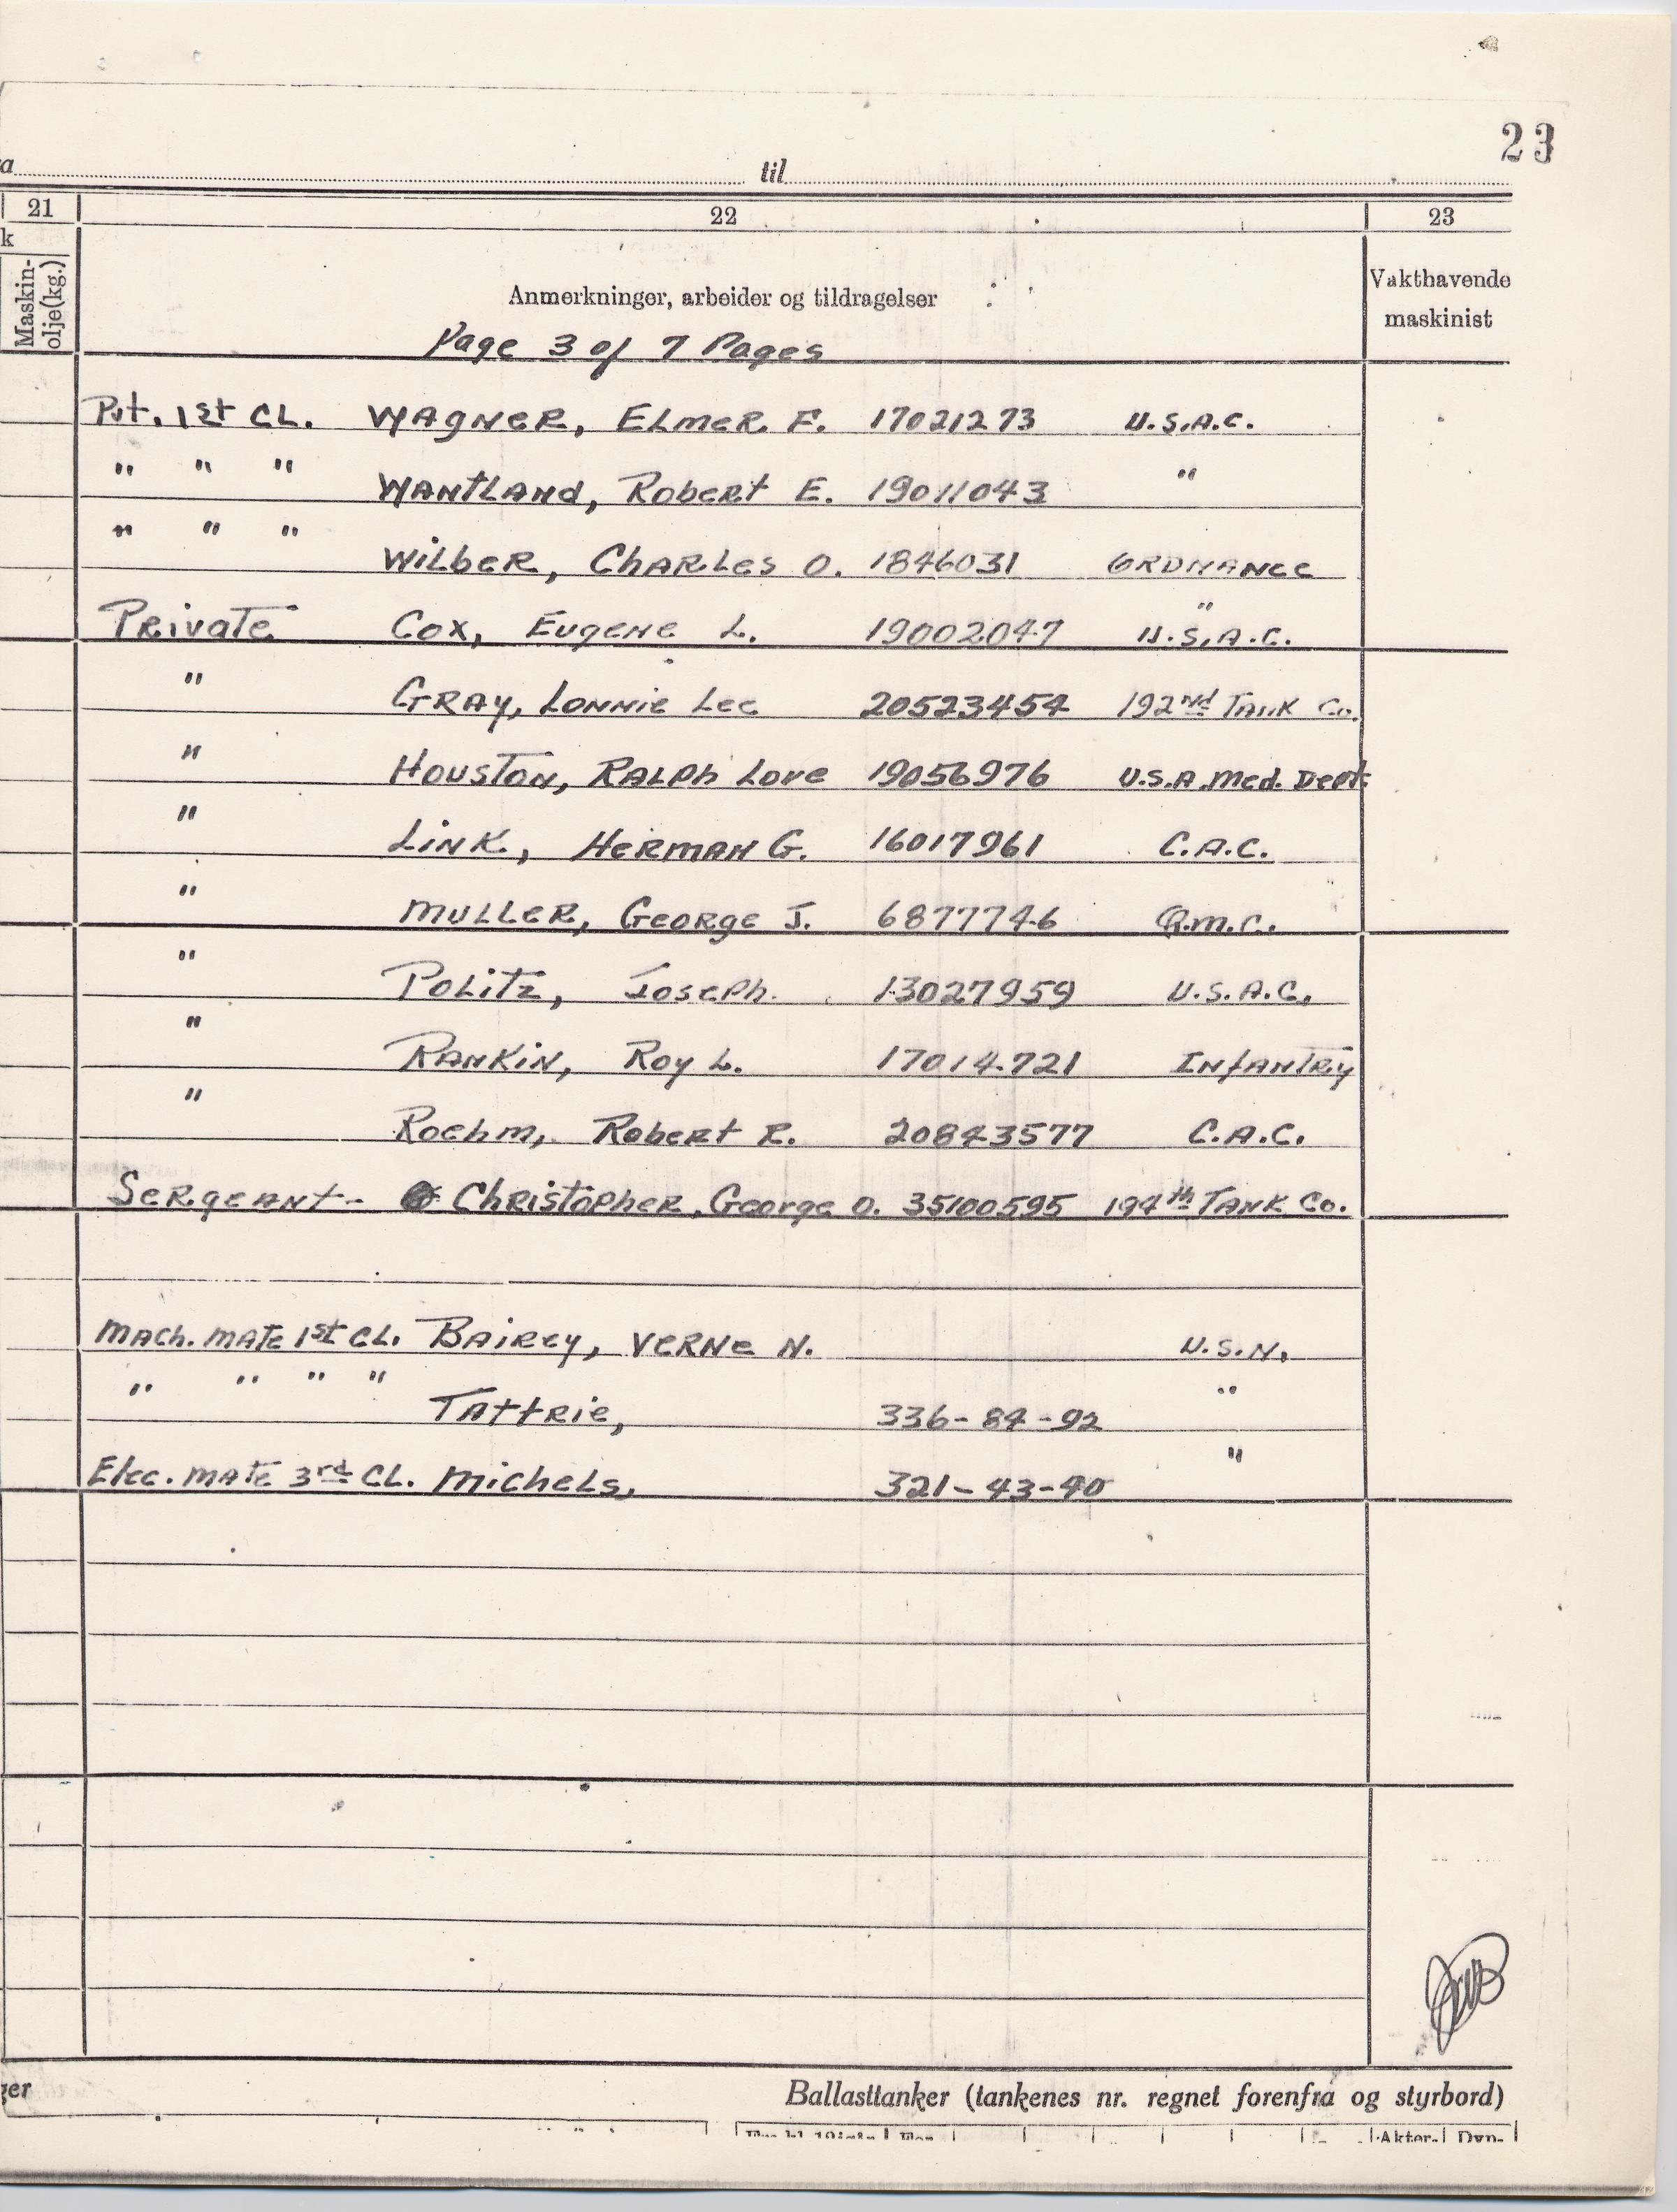 23
til
21 22 23
k
Maskin-
olje(kg.)
Anmerkninger, arbeider og tildragelser
Vakthavende
maskinist
Page 3 of 7 Pages
Pvt. 1st CL. WAGNER, ELMER F. 17021273 U.S.A.C.
" " " WANTLAND, Robert E. 19011043 "
" " " WILBER, CHARLES O. 1846031 ORDNANCE
Private COX, EUGENE L. 19002047 " U.S.A.C.
" GRAY, LONNIE Lee 20523454 192nd TANK Co.
" HOUSTON, RALPH Love 19056976 U.S.A. Med. Dept.
" LINK, HERMAN G. 16017961 C.A.C.
" MULLER, GEORGE J. 6877746 Q.M.C.
" POLITZ, JOSEPH 13027959 U.S.A.C.
" RANKIN, ROY L. 17014721 INFANTRY
" Roehm, Robert R. 20843577 C.A.C.
SERGEANT - CHRISTOPHER, George O. 35100595 194th TANK Co.
MACH. MATE 1st CL. BAIREY, VERNE N. U.S.N.
" " " " TATTRIE, 336-84-92 "
Elec. MATE 3rd CL. MICHELS, 321-43-40 "
ger
Ballasttanker (tankenes nr. regnet forenfra og styrbord)
Akter-